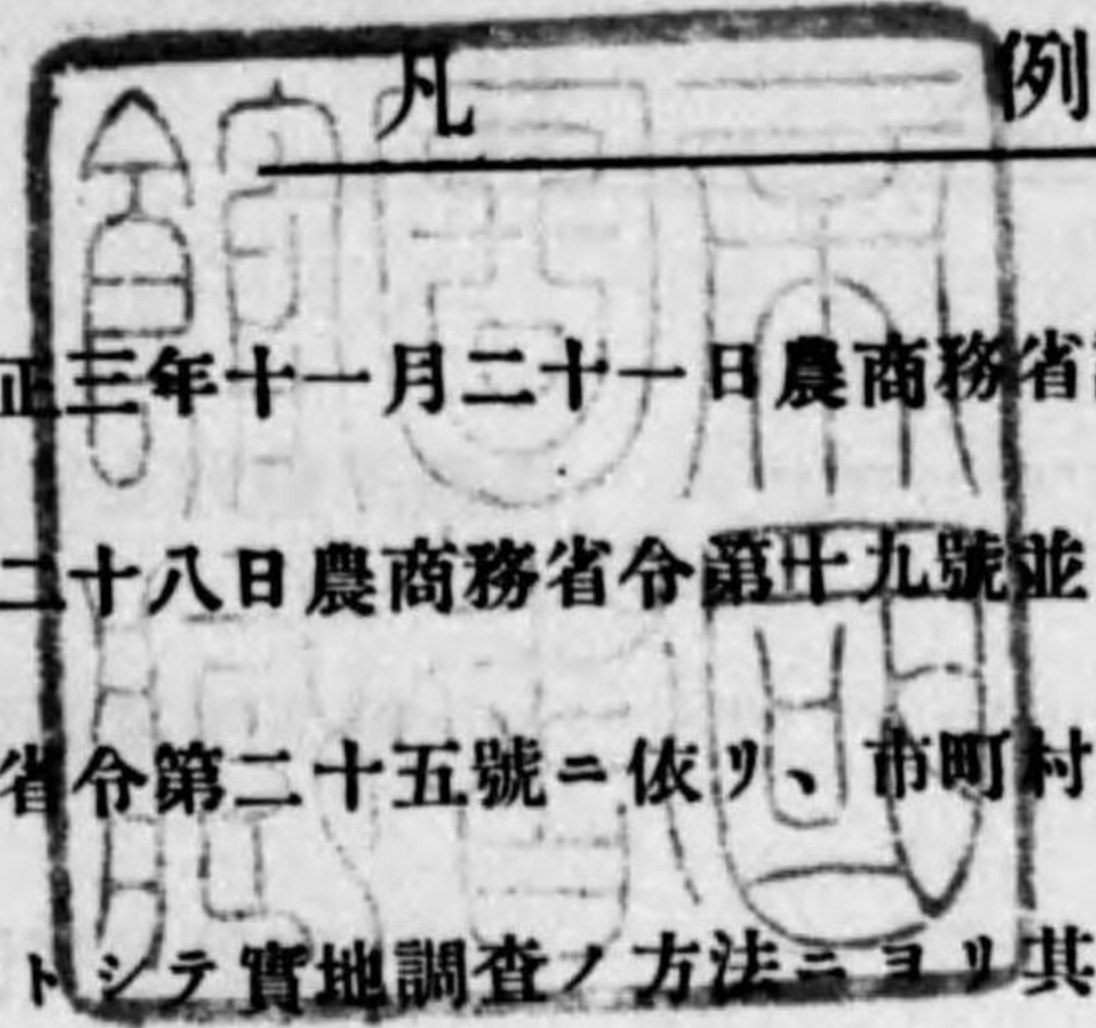 凡例
正三年十一月二十一日農商務省
二十八日農商務省令第十九號並
省令第二十五號ニ依リ、市町村
トシテ實地調査ノ方法ニヨリ其